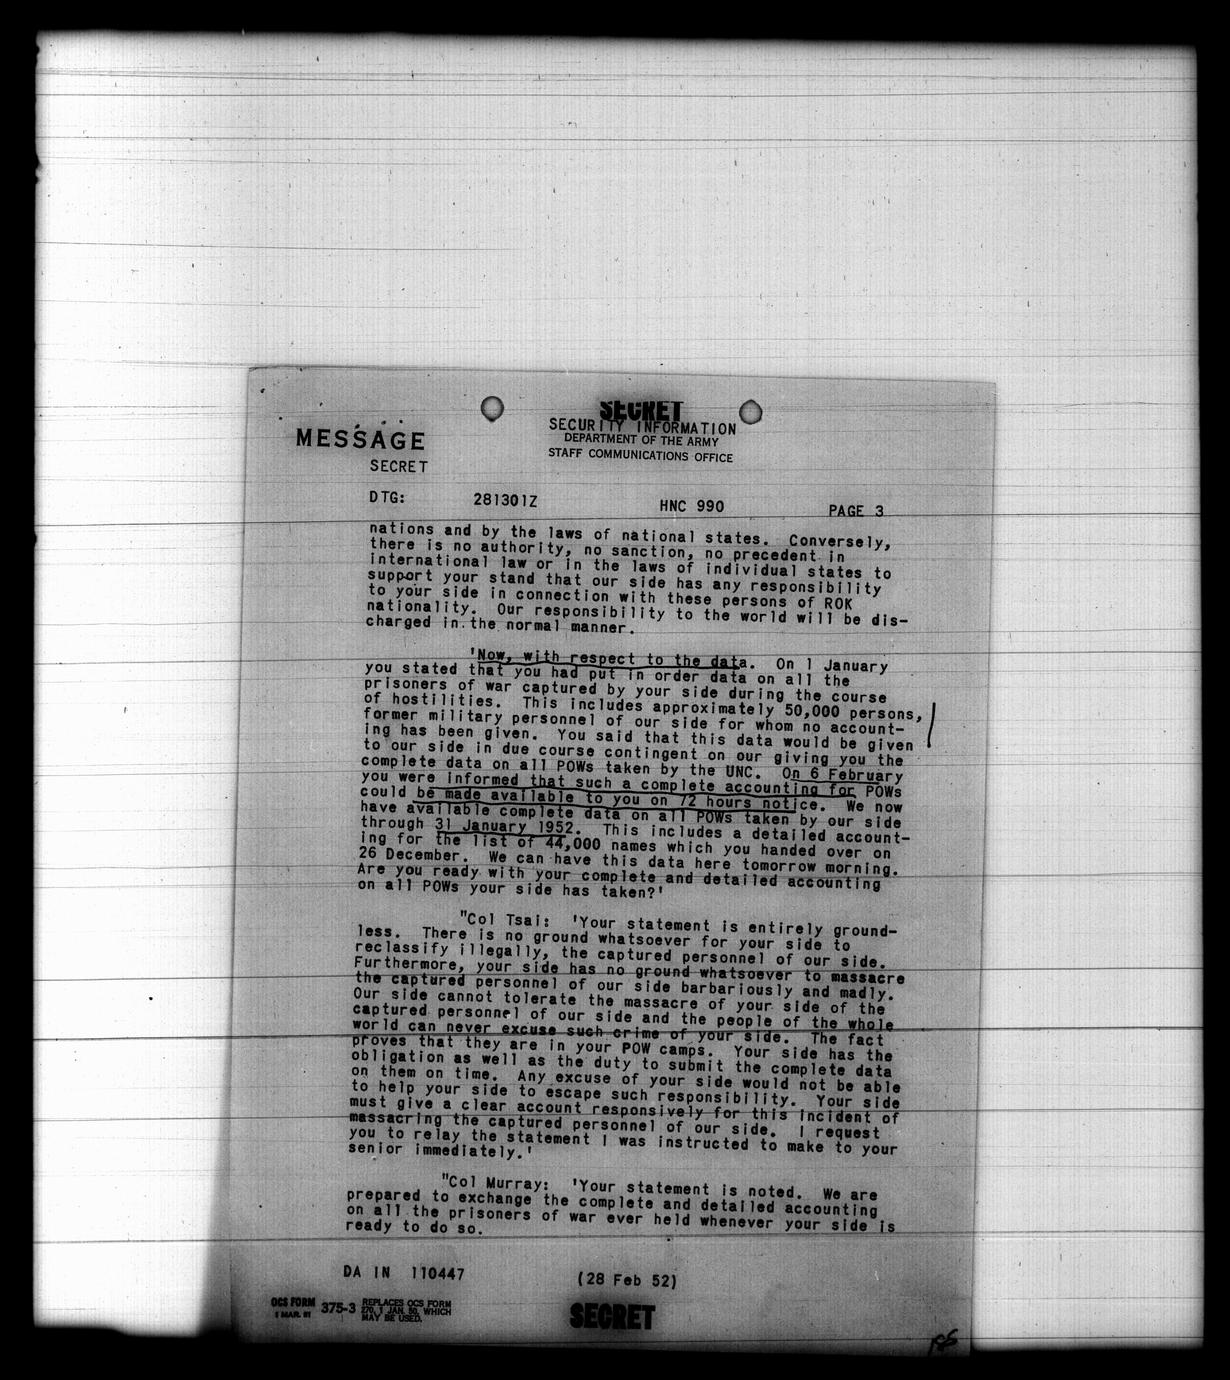 SECRET
SECURITY INFORMATION
MESSAGE
DEPARTMENT OF THE ARMY
STAFF COMMUNICATIONS OFFICE
SECRET
DTG: 281301Z HNC 990 PAGE 3
nations and by the laws of national states. Conversely,
there is no authority, no sanction, no precedent in
international law or in the laws of individual states to
support your stand that our side has any responsibility
to your side in connection with these persons of ROK
nationality. Our responsibility to the world will be dis-
charged in the normal manner.
'Now, with respect to the data. On 1 January
you stated that you had put in order data on all the
prisoners of war captured by your side during the course
of hostilities. This includes approximately 50,000 persons,
former military personnel of our side for whom no account-
ing has been given. You said that this data would be given
to our side in due course contingent on our giving you the
complete data on all POWs taken by the UNC. On 6 February
you were informed that such a complete accounting for POWs
could be made available to you on 72 hours notice. We now
have available complete data on all POWs taken by our side
through 31 January 1952. This includes a detailed account-
ing for the list of 44,000 names which you handed over on
26 December. We can have this data here tomorrow morning.
Are you ready with your complete and detailed accounting
on all POWs your side has taken?'
"Col Tsai: 'Your statement is entirely ground-
less. There is no ground whatsoever for your side to
reclassify illegally, the captured personnel of our side.
Furthermore, your side has no ground whatsoever to massacre
the captured personnel of our side barbariously and madly.
Our side cannot tolerate the massacre of your side of the
captured personnel of our side and the people of the whole
world can never excuse such crime of your side. The fact
proves that they are in your POW camps. Your side has the
obligation as well as the duty to submit the complete data
on them on time. Any excuse of your side would not be able
to help your side to escape such responsibility. Your side
must give a clear account responsively for this incident of
massacring the captured personnel of our side. I request
you to relay the statement I was instructed to make to your
senior immediately.'
"Col Murray: 'Your statement is noted. We are
prepared to exchange the complete and detailed accounting
on all the prisoners of war ever held whenever your side is
ready to do so.
DA IN 110447 (28 Feb 52)
OCS FORM
1 MAR. 51
375-3
REPLACES OCS FORM
270, 1 JAN. 50, WHICH
MAY BE USED.
SECRET